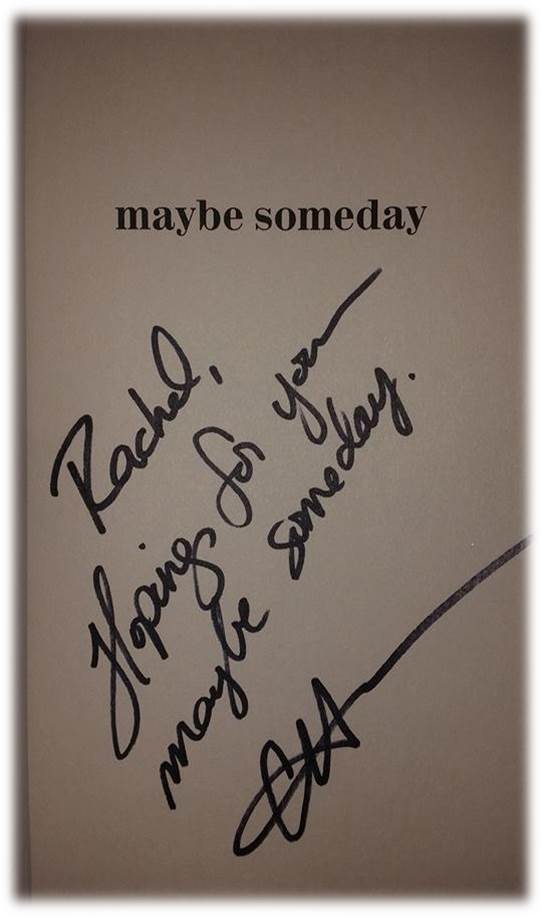 maybe someday
Rachel,
Hoping for you
maybe someday.